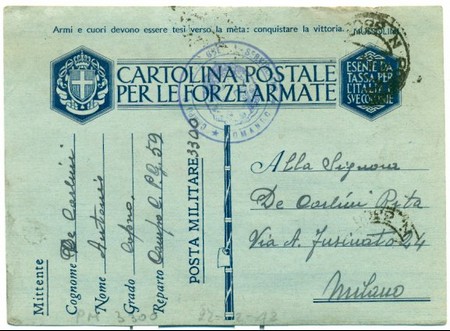 Armi e cuori devono essere tesi verso la mèta: conquistare la vittoria. MUSSOLINI
CARTOLINA POSTALE
PER LE FORZE ARMATE
ESENTE DA
TASSA PER
L'ITALIA E
SVE CONOE
Mittente
Cognome De Carlini
Nome Antonio
Grado
Reparto Campo C. P.G. 59
POSTA MILITARE 3300
Alla Signora
De Carlini Rita
Via A. Fusinato 24
Milano
PM 3300